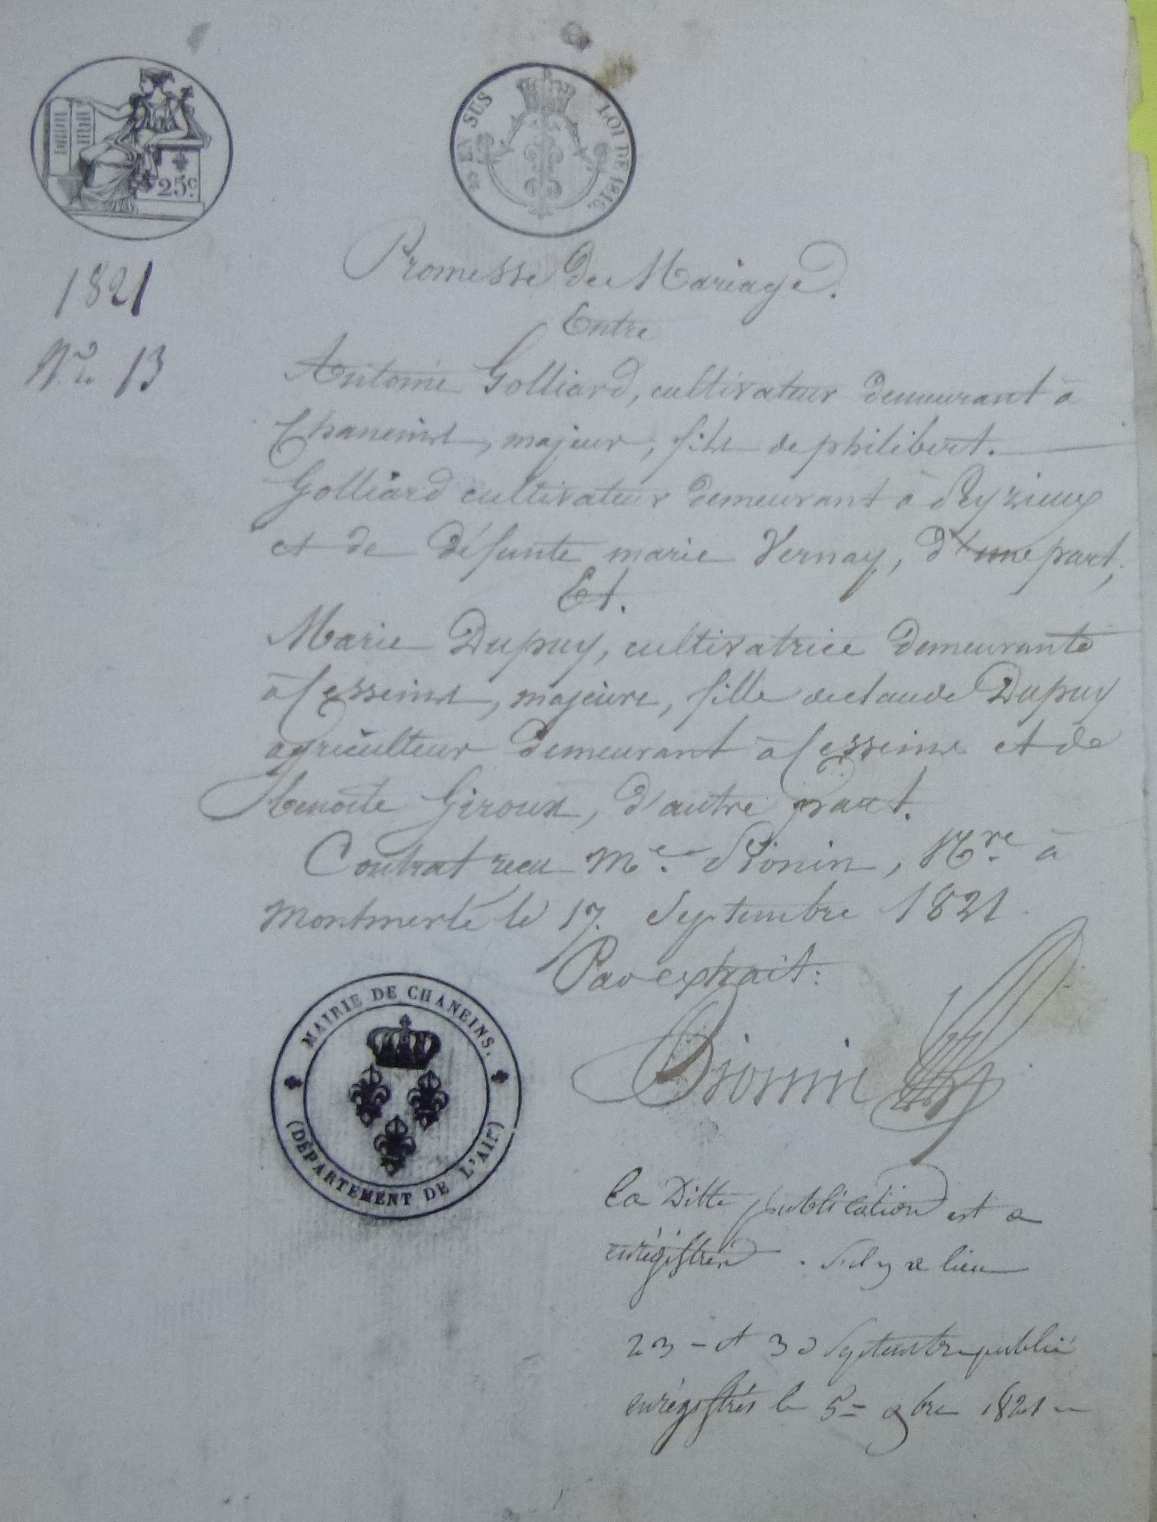 25c.
EN SUS LOI DE 1816.
1821
N.o 13
Promesse de Mariage.
Entre
Antoine Golliard, cultivateur demeurant à
Chaneins, majeur, fils de philibert.
Golliard cultivateur demeurant à
et de défunte marie Vernay, d'une part,
Et.
Marie Dupuy, cultivatrice demeurante
à Cesseins, majeure, fille de claude Dupuy
agriculteur demeurant à Cesseins et de
Benoite Giroux, d'autre part.
Contrat recu Me. Dionin, Nre. à
Montmerle le 17. Septembre 1821
Par extrait:
Dionin
MAIRIE DE CHANEINS.
(DÉPARTEMENT DE L'AIN)
la Ditte publication est a
enrégistrée . S'il y a lieu
23 - et 30 Septembre publié
enrégistrés le 5 = 8bre 1821